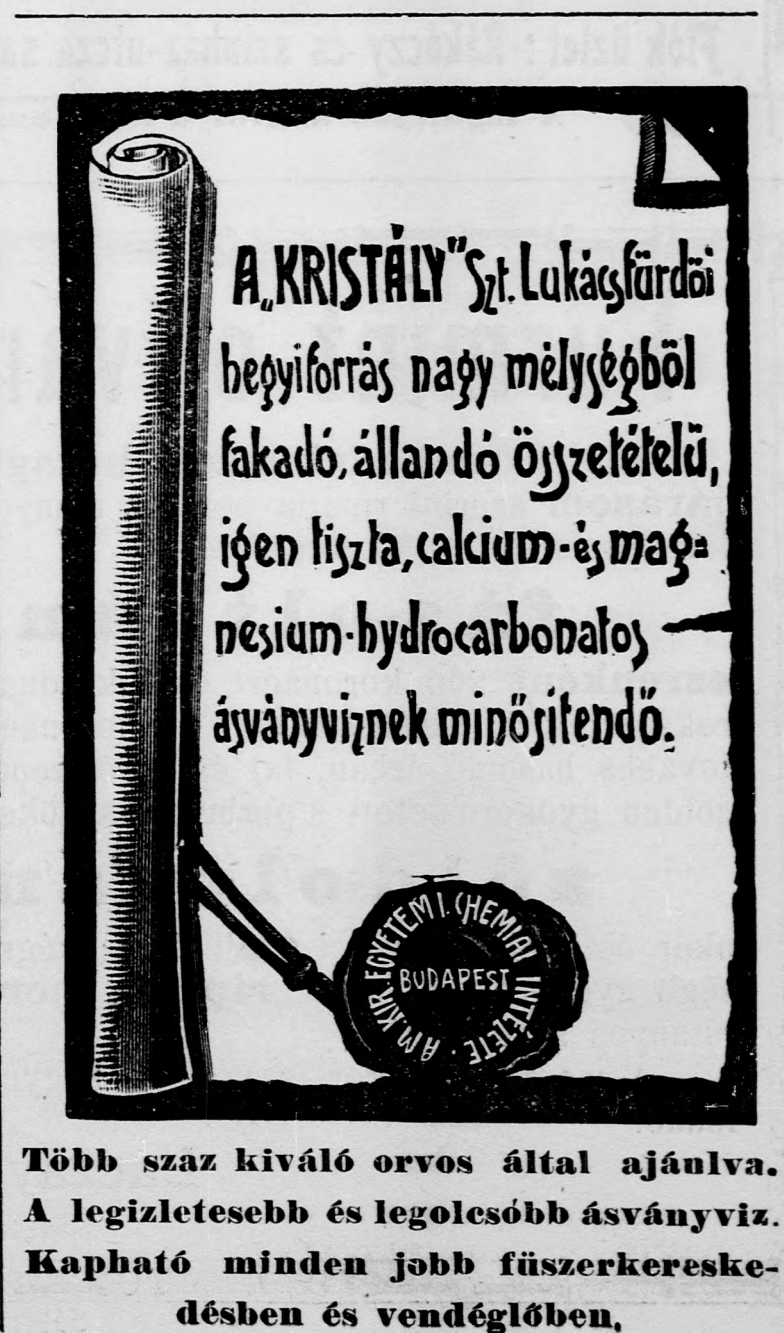 A „KRISTÁLY" Szt. Lukácsfürdői
hegyiforrás nagy mélységből
fakadó, állandó összetételű,
igen tiszta, calcium- és mag-
nesium-hydrocarbonatos
ásványviznek minősítendő.
A M. KIR. EGYETEMI I. CHEMIAI INTÉZETE.
BUDAPEST
Több szaz kiváló orvos által ajánlva.
A legizletesebb és legolcsóbb ásványviz.
Kapható minden jobb füszerkereske-
désben és vendéglőben.